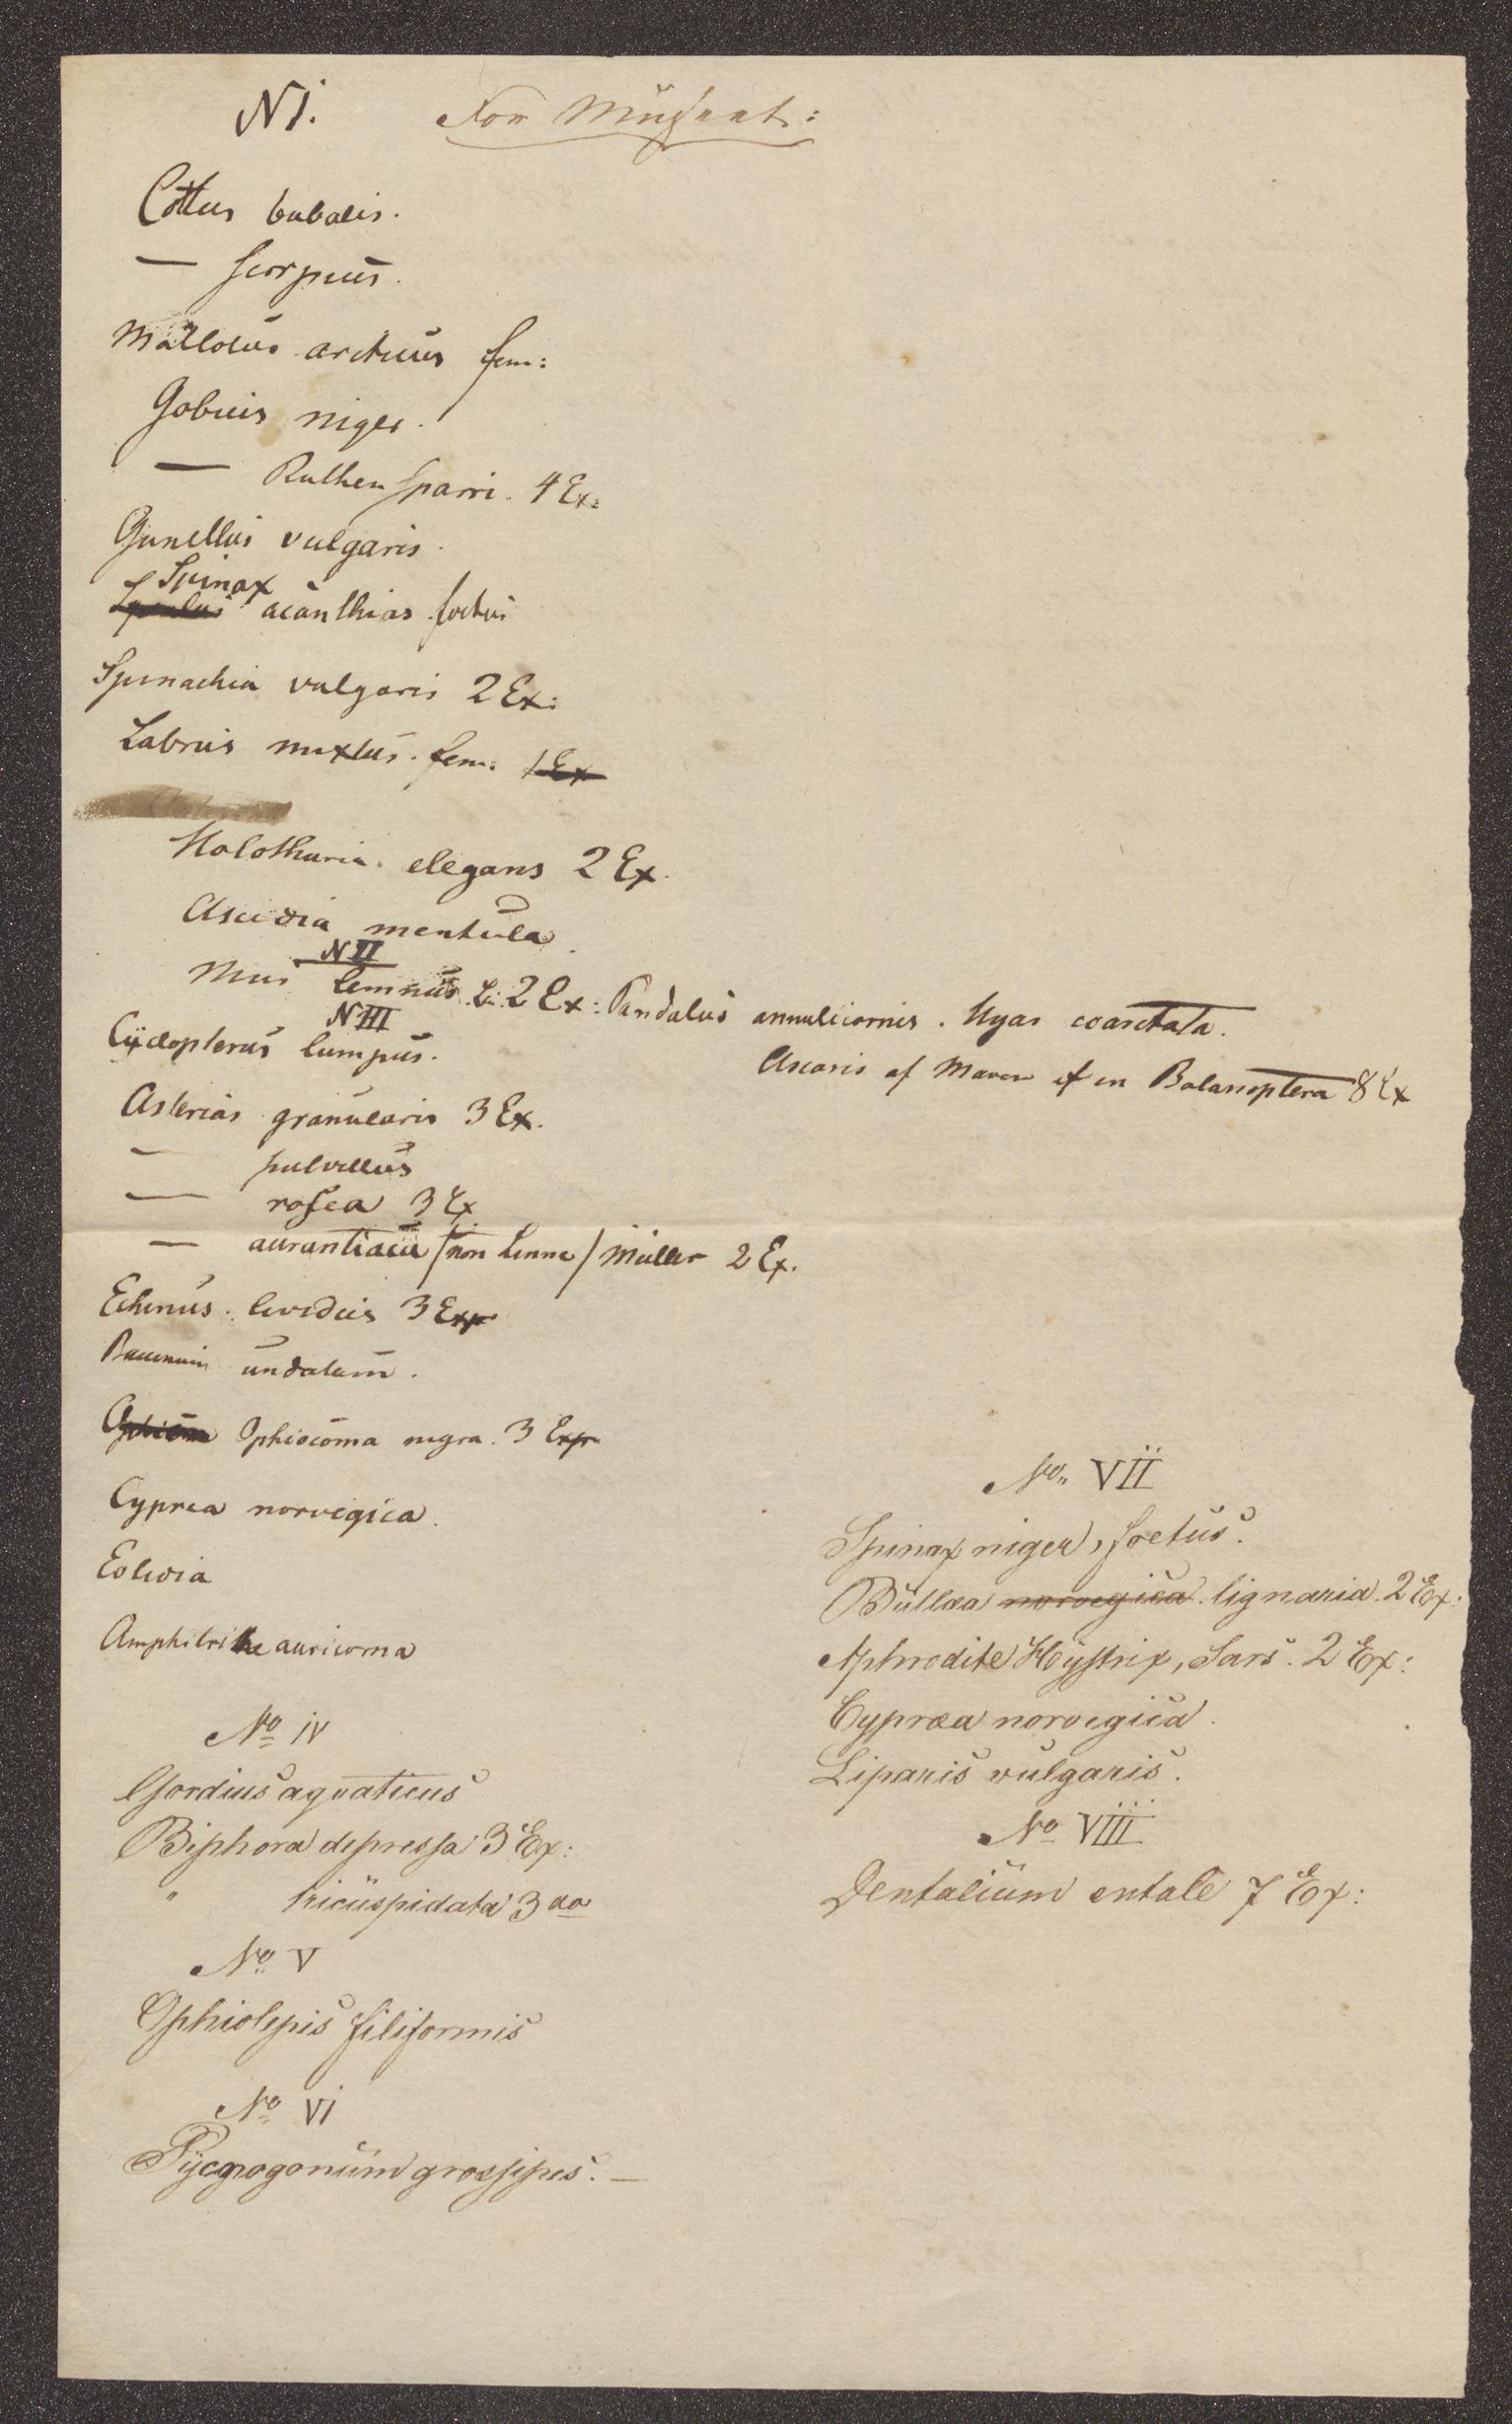 N I. For Museet:
Cottus bubalis.
— scorpius.
Mallotus arcticus fem:
Gobius niger.
— Ruthensparri. 4 Ex:
Gunellus vulgaris.
Spinax
acanthias foetus
Spinachia vulgaris 2 Ex:
Labrus mixtus. fem: 1 Ex
Holothuria elegans 2 Ex.
Ascidia mentula.
N II
Mus lemnus L: 2 Ex: Pandalus annulicornis. Hyas coarctata.
N III
Cyclopterus lumpus.
Ascaris af Maven af en Balanoptera 8 Ex
Asterias granularis 3 Ex.
— pulvillus
— rosea 3 Ex
— aurantiaca /non Linne/ Müller 2 Ex.
Echinus lividus 3 Exp
Buccinum undatum.
Ophiocoma nigra. 3 Exp
Cypræa norvegica.
Eolidia
Amphitrite auricoma
No IV
Gordius aquaticus
Biphora depressa 3 Ex:
" tricuspidata 3 do
No V
Ophiolepis filiformis
No VI
Pycnogonum grossipes. —
No VII
Spinax niger, foetus.
Bullæa norvegica. lignaria. 2 Ex:
Aphrodite Hystrix, Sars. 2 Ex:
Cypræa norvegica.
Liparis vulgaris.
No VIII
Dentalium entale 7 Ex: